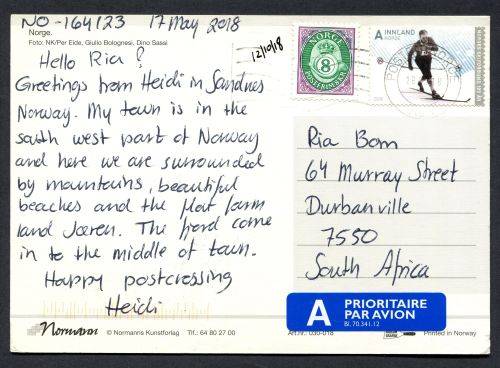 NO-164123 17 May 2018
Norge.
Foto: NK/Per Eide, Giulio Bolognesi, Dino Sassi
Hello Ria!
Greetings from Heidi in Sandnes
Norway. My town is in the
south west part of Norway
and here we are surrounded
by mountains, beautiful
beaches and the flat farm
land Jæren. The fjord come
in to the middle of town.
Happy postcrossing
Heidi
Normann
© Normanns Kunstforlag Tlf.: 64 80 27 00
12/10/18
NORGE
8
POSTFRIM
A INNLAND
NORGE
POSTEN
Ria Bom
64 Murray Street
Durbanville
7550
South Africa
A PRIORITAIRE
PAR AVION
Bl. 70.341.12
Art.nr. 030-018
Printed in Norway